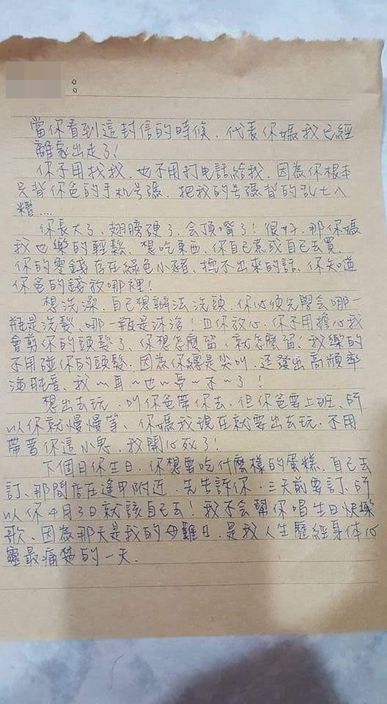 :
當你看到這封信的時候,代表你媽我已經
離家出走了!
你不用找我,也不用打电話給我,因為你根本
只背你爸的手机号碼,把我的号碼背的乱七八
糟....
你長大了,翅膀硬了,会頂嘴了!很好,那你媽
我也樂的輕鬆,想吃東西,你自己煮或自己去買,
你的零錢存在綠色小豬,挖不出來的話,你知道
你爸的錢放哪裡!
想洗澡,自己想辦法洗頭,你必須先學会哪一
瓶是洗髮,哪一瓶是沐浴!且你放心,你不用擔心我
會剪你的頭髮了,你想怎麼留,就怎麼留,我樂的
不用碰你的頭髮,因為你總是尖叫,还發出高頻率
海豚音,我~耳~也~受~不~了!
想出去玩,叫你爸帶去,但你爸要上班,所
以你就慢慢等,你媽我現在就要出去玩,不用
帶著你這小鬼,我開心死了!
下個月你生日,你想要吃什麼樣的蛋糕,自己去
訂,那間店在逢甲附近,先告訴你,三天前要訂,所
以你4月3日就該自己去!我不会幫你唱生日快樂
歌,因為那天是我的母難日,是我人生歷經身体心
靈最痛楚的一天.